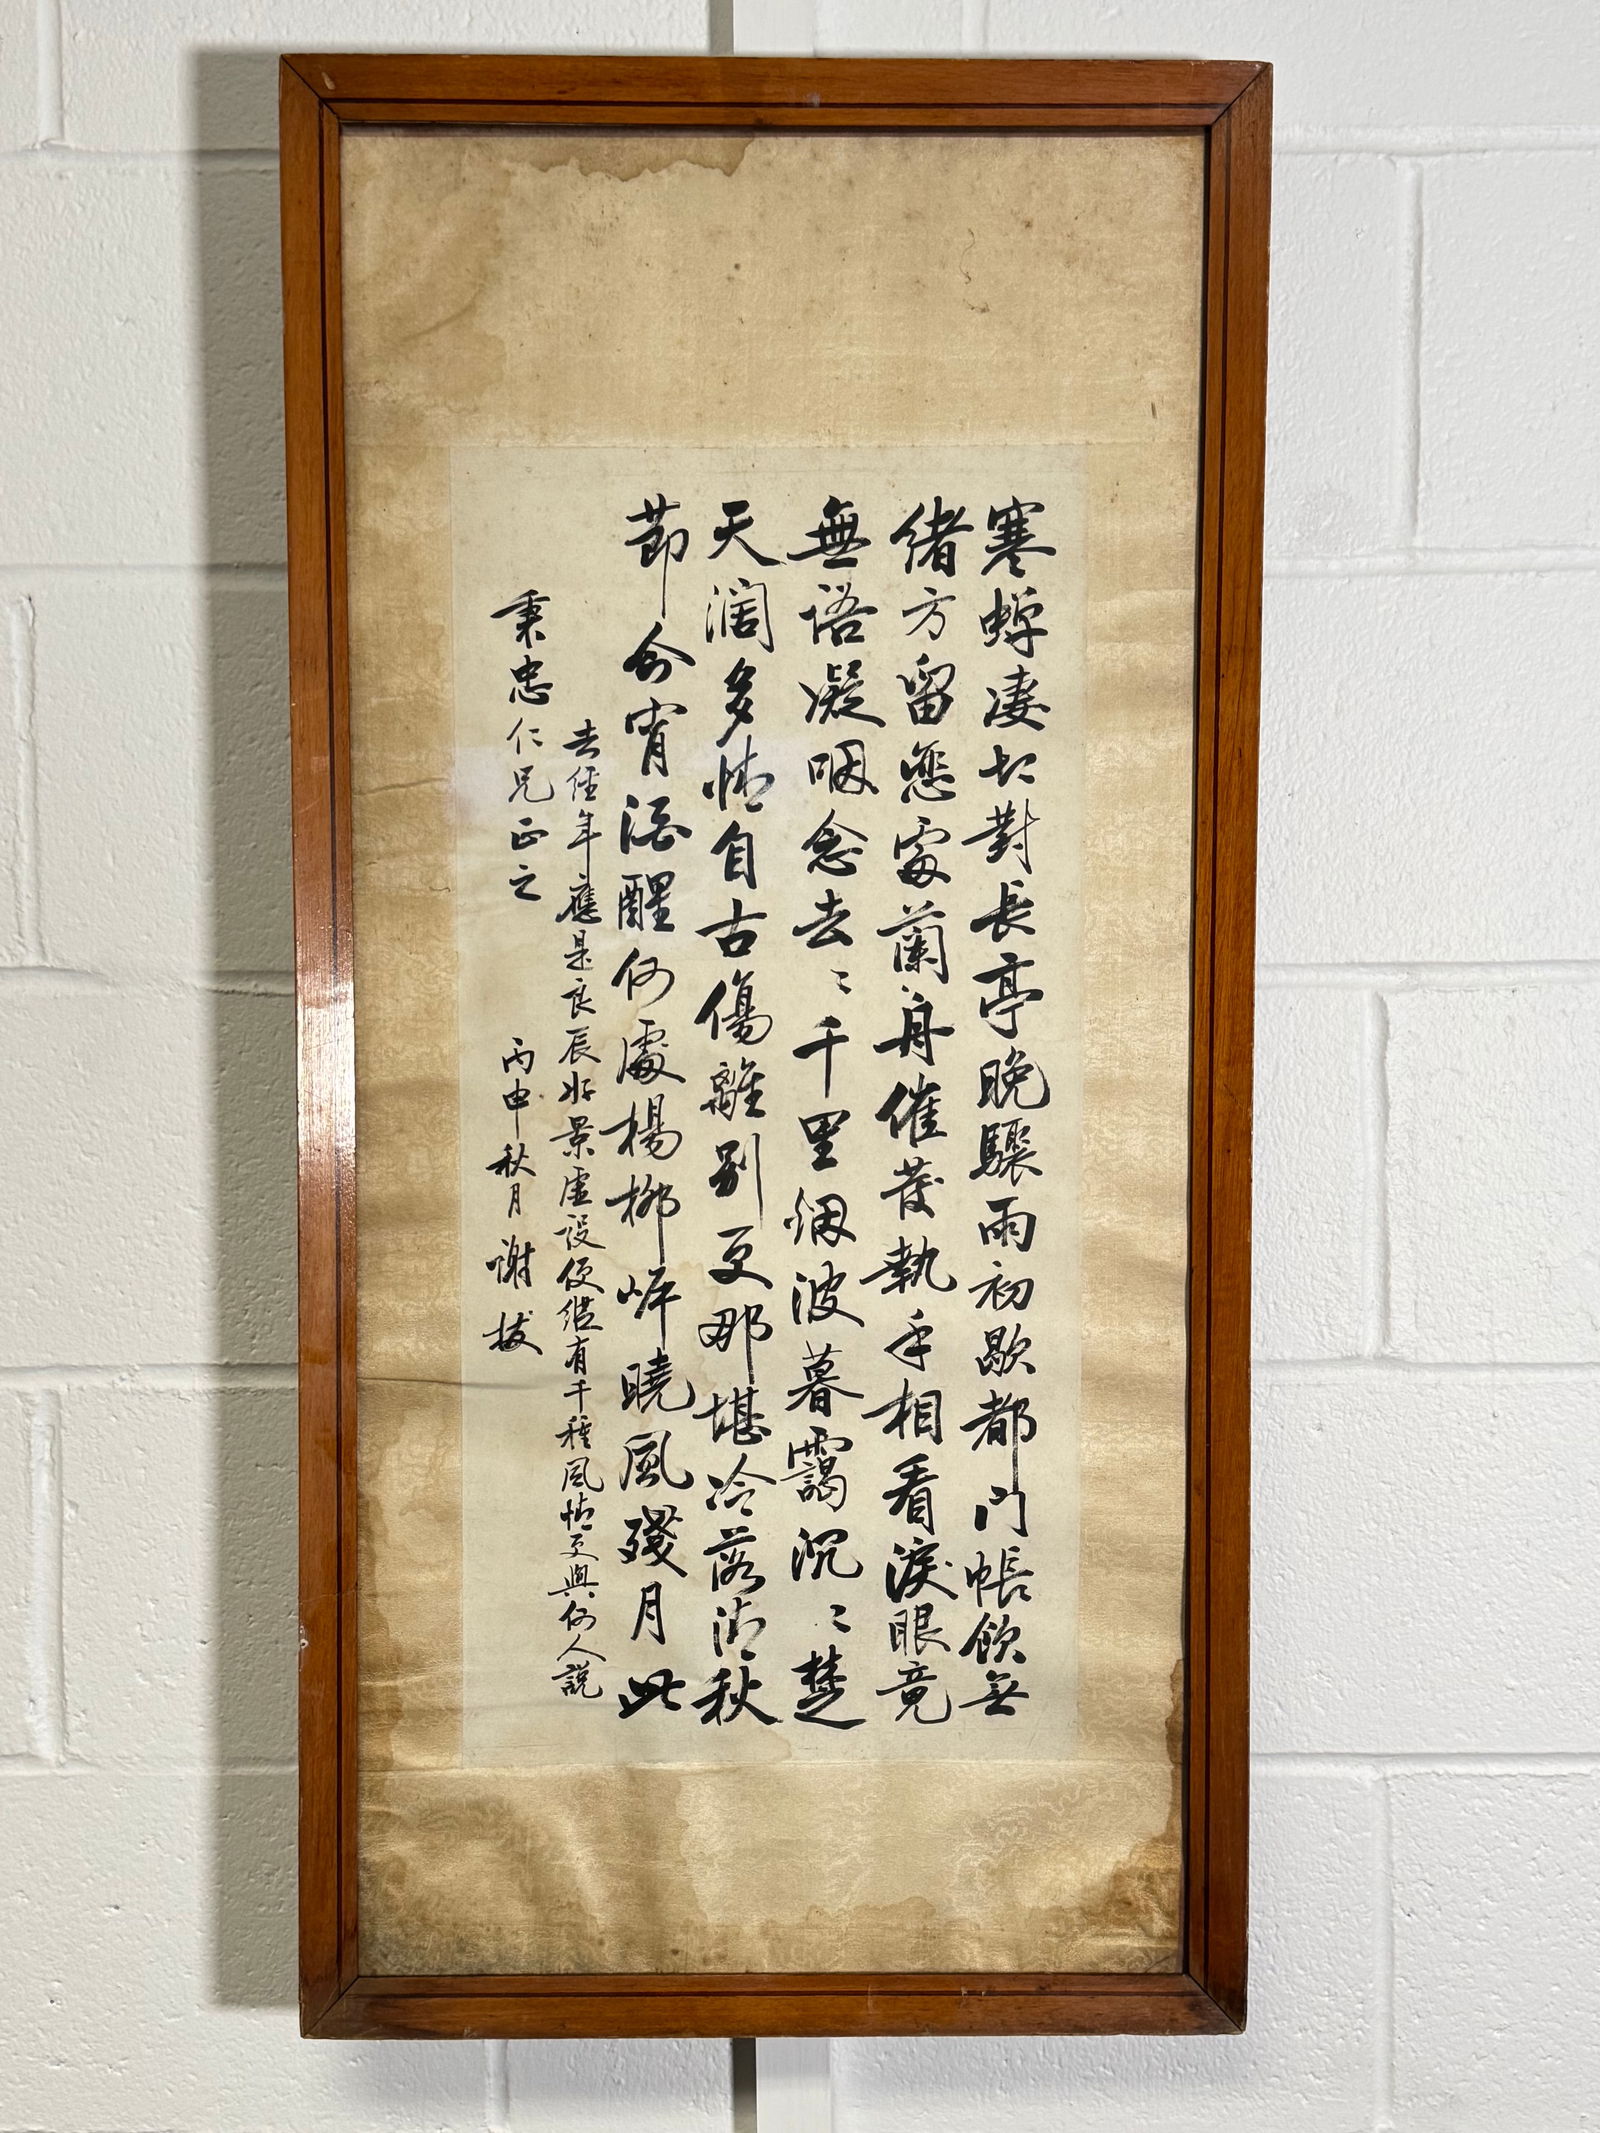 寒蟬凄切對長亭晚驟雨初歇都門帳飲無
緒方留戀處蘭舟催發執手相看淚眼竟
無語凝咽念去〻千里烟波暮靄沉〻楚
天闊多情自古傷離別更那堪冷落清秋
節今宵酒醒何處楊柳岸曉風殘月此
去經年應是良辰好景虛設便縱有千種風情更與何人說
秉忠仁兄正之
丙申秋月 謝拔